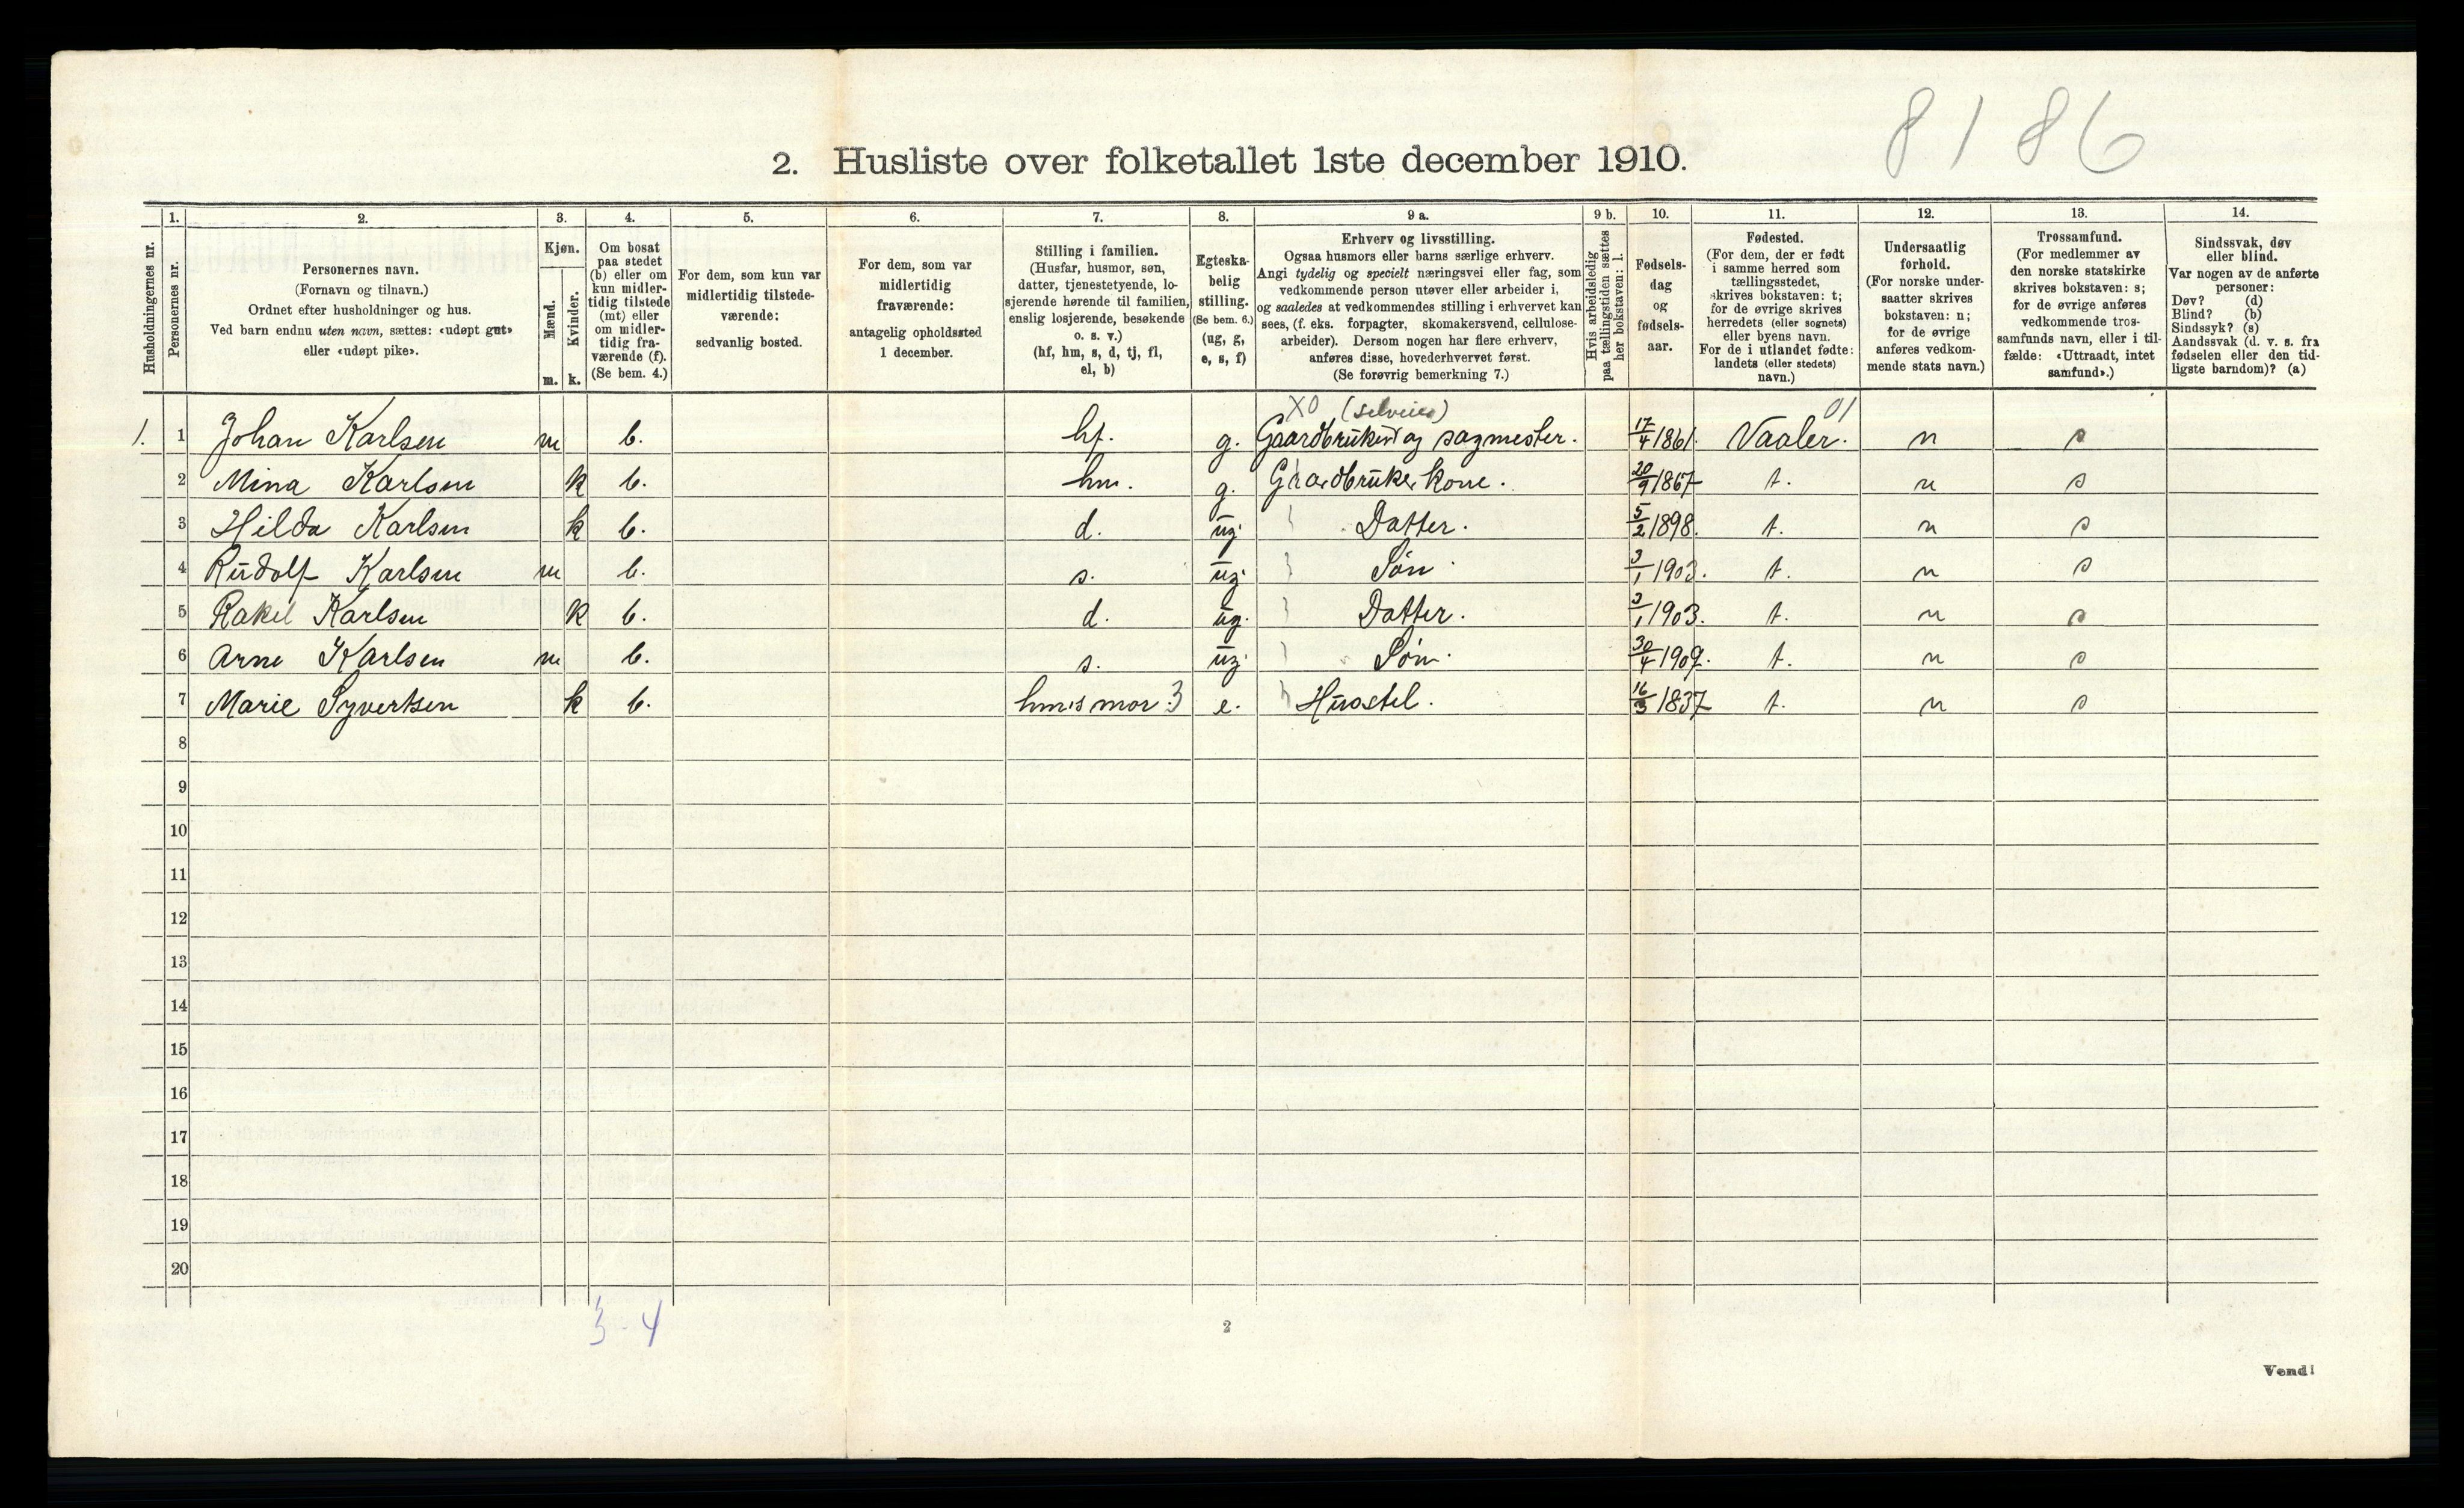 8186
2. Husliste over folketallet 1ste december 1910.
Husholdningernes nr.
1. Personernes nr.
2. Personernes navn. (Fornavn og tilnavn.) Ordnet efter husholdninger og hus. Ved barn endnu uten navn, sættes: «udøpt gut» eller «udøpt pike».
3. Kjøn. Mænd. m. Kvinder. k.
4. Om bosat paa stedet (b) eller om kun midler-tidig tilstede (mt) eller om midler-tidig fra-værende (f). (Se bem. 4.)
5. For dem, som kun var midlertidig tilstede-værende: sedvanlig bosted.
6. For dem, som var midlertidig fraværende: antagelig opholdssted 1 december.
7. Stilling i familien. (Husfar, husmor, søn, datter, tjenestetyende, lo-sjerende hørende til familien, enslig losjerende, besøkende o. s. v.) (hf, hm, s, d, tj, fl, el, b)
8. Egteska-belig stilling. (Se bem. 6.) (ug, g, e, s, f)
9 a. Erhverv og livsstilling. Ogsaa husmors eller barns særlige erhverv. Angi tydelig og specielt næringsvei eller fag, som vedkommende person utøver eller arbeider i, og saaledes at vedkommendes stilling i erhvervet kan sees, (f. eks. forpagter, skomakersvend, cellulose-arbeider). Dersom nogen har flere erhverv, anføres disse, hovederhvervet først. (Se forøvrig bemerkning 7.)
9 b. Hvis arbeidsledig paa tællingstiden sættes her bokstaven: l.
10. Fødsels-dag og fødsels-aar.
11. Fødested. (For dem, der er født i samme herred som tællingsstedet, skrives bokstaven: t; for de øvrige skrives herredets (eller sognets) eller byens navn. For de i utlandet fødte: landets (eller stedets) navn.)
12. Undersaatlig forhold. (For norske under-saatter skrives bokstaven: n; for de øvrige anføres vedkom-mende stats navn.)
13. Trossamfund. (For medlemmer av den norske statskirke skrives bokstaven: s; for de øvrige anføres vedkommende tros-samfunds navn, eller i til-fælde: «Uttraadt, intet samfund».)
14. Sindssvak, døv eller blind. Var nogen av de anførte personer: Døv? (d) Blind? (b) Sindssyk? (s) Aandssvak (d. v. s. fra fødselen eller den tid-ligste barndom)? (a)
X0 (selveier) 01
1. 1 Johan Karlsen m b. hf. g. Gaardbruker og sagmester. 17/4 1861. Vaaler. n s
2 Mina Karlsen k b. hm. g. Gaardbruker kone. 20/9 1867 t. n s
3 Hilda Karlsen k b. d. ug. Datter. 5/2 1898. t. n s
4 Rudolf Karlsen m b. s. ug. Søn 3/1 1903. t. n s
5 Rakel Karlsen k b. d. ug. Datter. 3/1 1903. t. n s
6 Arne Karlsen m b. s. ug. Søn. 30/4 1909. t. n s
7 Marie Syvertsen k b. hm's mor. 3 e. Husstel. 16/3 1837 t. n s
8
9
10
11
12
13
14
15
16
17
18
19
20
3 - 4
2
Vend!